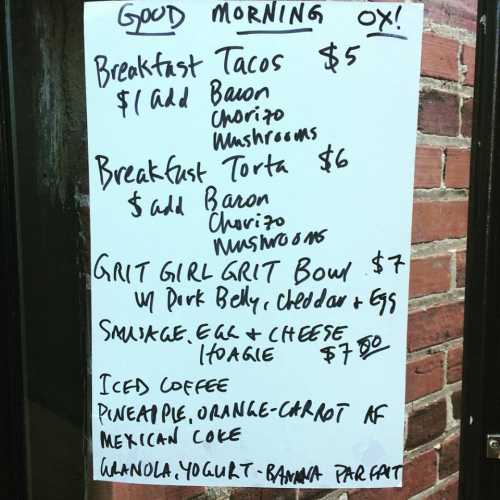 GOOD MORNING OX!
Breakfast Tacos $5
$1 add Bacon
Chorizo
Mushrooms
Breakfast Torta $6
$ add Bacon
Chorizo
Mushrooms
GRIT GIRL GRIT Bowl $7
w/ Pork Belly, cheddar + Egg
SAUSAGE, EGG + CHEESE
HOAGIE $7.00
ICED COFFEE
PINEAPPLE, ORANGE-CARROT AF
MEXICAN COKE
GRANOLA, YOGURT-BANANA PARFAIT